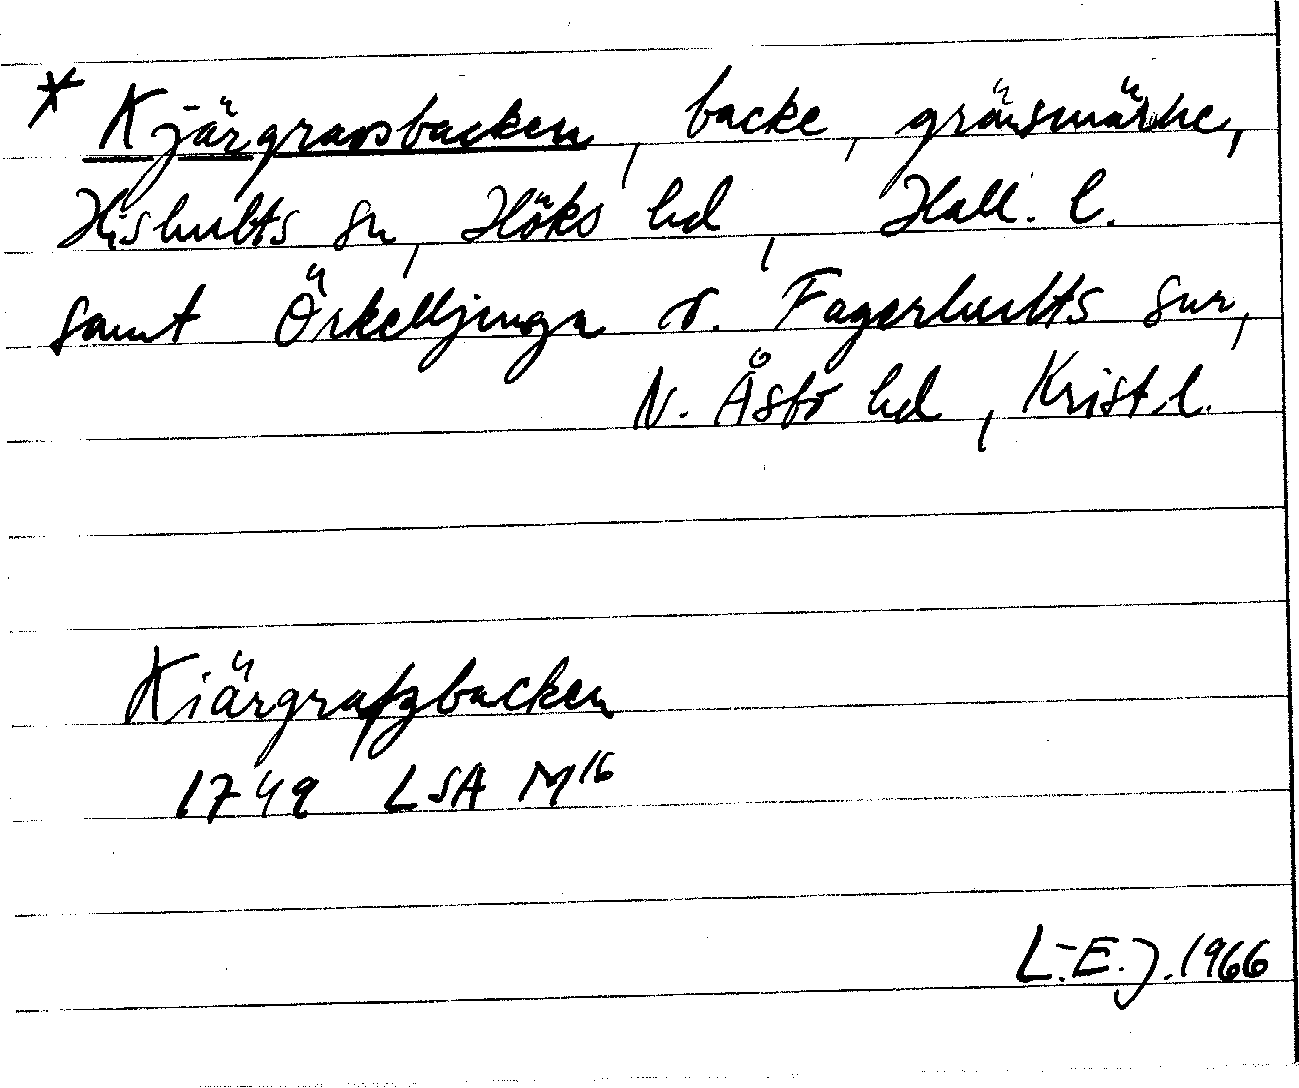 * Kjärgravsbacken, backe, gränsmärke,
Hishults sn, Höks hd, Hall. l.
samt Örkelljunga o. Fagerhults snr,
N. Åsbo hd, Krist. l.
Kiärgrafzbacken
1749 LSA M16
L.-E.J. 1966